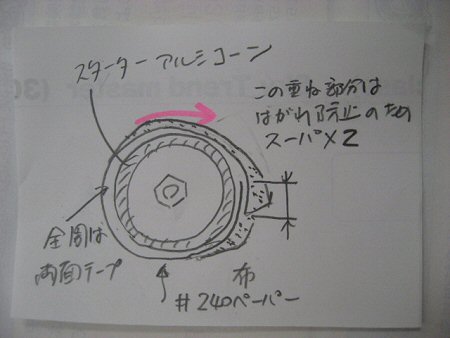 スターターアルミコーン
この重ね部分は
はがれ防止のため
スーパX2
全周は
両面テープ
布
#240ペーパー